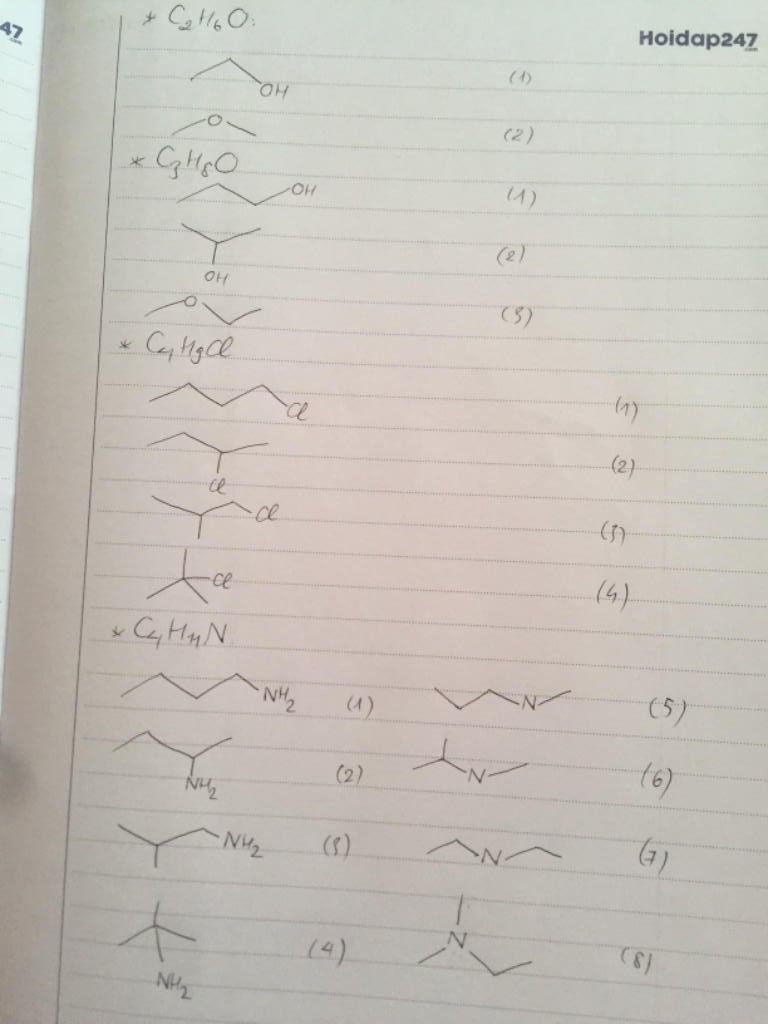 47
.com
Hoidap247
.com
* C2H6O:
OH (1)
O (2)
* C3H8O
OH (1)
OH (2)
O (3)
* C4H9Cl
Cl (1)
Cl (2)
Cl (3)
Cl (4)
* C4H11N
NH2 (1) N (5)
NH2 (2) N (6)
NH2 (3) N (7)
NH2 (4) N (8)